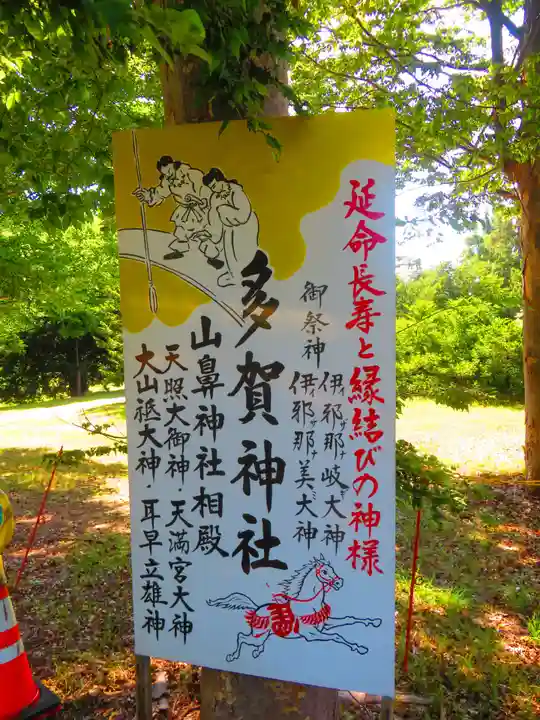 延命長寿と縁結びの神様
御祭神
伊邪那岐大神
イザナギ
伊邪那美大神
イザナミ
多賀神社
山鼻神社相殿
天照大御神・天満宮大神
大山祇大神・耳早立雄神